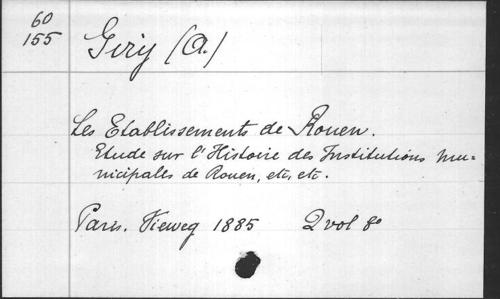 60
155
Giry (A.)
Les Etablissements de Rouen.
Etude sur l'Histoire des Institutions mu=
nicipales de Rouen, etc, etc.
Paris. Vieweg 1885 2 vol 8º